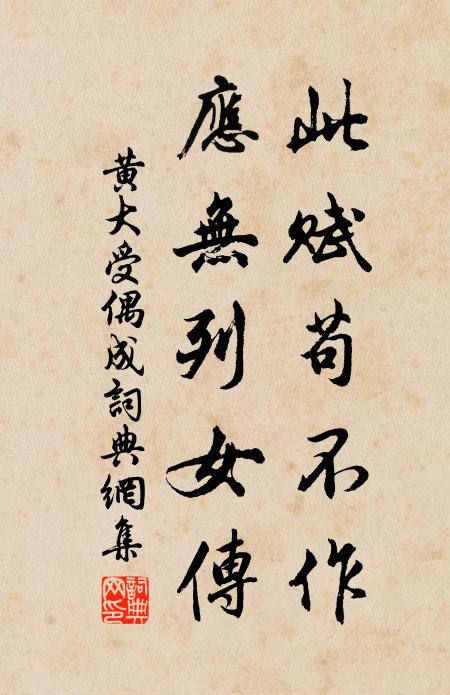 此賦苟不作
應無列女傳
黄大受偶成詞典網集
詞典網印